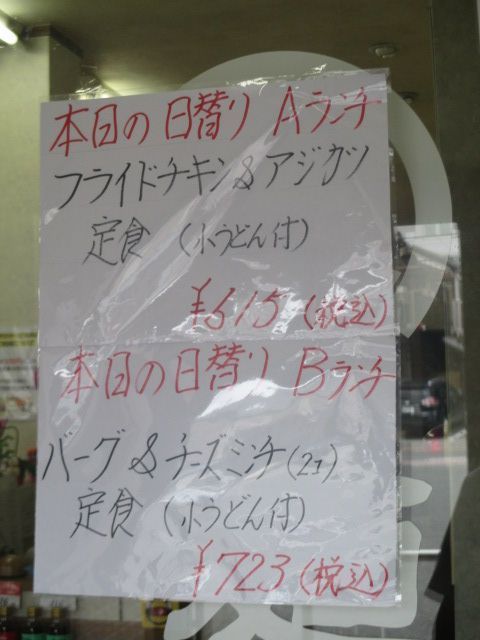 本日の日替り Aランチ
フライドチキン&アジカツ
定食 (小うどん付)
¥615(税込)
本日の日替り Bランチ
バーグ&チーズミンチ(2ヶ)
定食 (小うどん付)
¥723(税込)